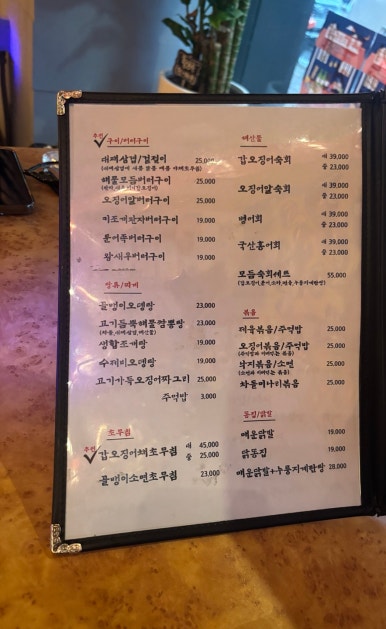 추천
구이/버터구이
대패삼겹/겉절이 25,000
해물모듬버터구이 25,000
오징어알버터구이 25,000
키조개관자버터구이 19,000
문어족버터구이 19,000
왕새우버터구이 19,000
탕류/찌개
골뱅이오뎅탕 23,000
고기듬뿍해물짬뽕탕 23,000
생합조개탕 19,000
수제비오뎅탕 19,000
고기가득오징어짜그리 25,000
주먹밥 3,000
초무침
추천
갑오징어야채초무침 대 45,000
중 25,000
골뱅이소면초무침 23,000
해산물
갑오징어숙회 대 39,000
중 23,000
오징어알숙회 대 39,000
중 23,000
병어회 대 39,000
중 23,000
국산홍어회 대 39,000
중 23,000
모듬숙회세트 55,000
볶음
제육볶음/주먹밥 19,000
오징어볶음/주먹밥 25,000
낙지볶음/소면 25,000
차돌미나리볶음 25,000
똥집/닭발
매운닭발 19,000
닭똥집 19,000
매운닭발+누룽지계란탕 28,000